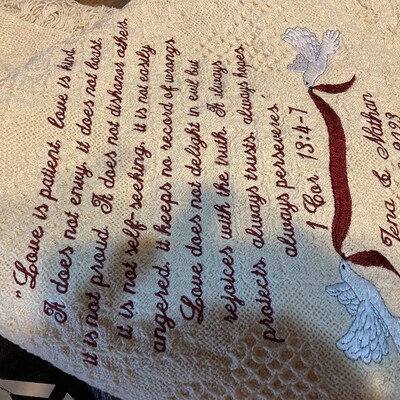 "Love is patient, love is kind.
It does not envy, it does not boast,
it is not proud. It does not dishonor others,
it is not self-seeking, it is not easily
angered, it keeps no record of wrongs.
Love does not delight in evil but
rejoices with the truth. It always
protects, always trusts, always hopes,
always perseveres.
1 Cor. 13:4-7
Tena & Nathan